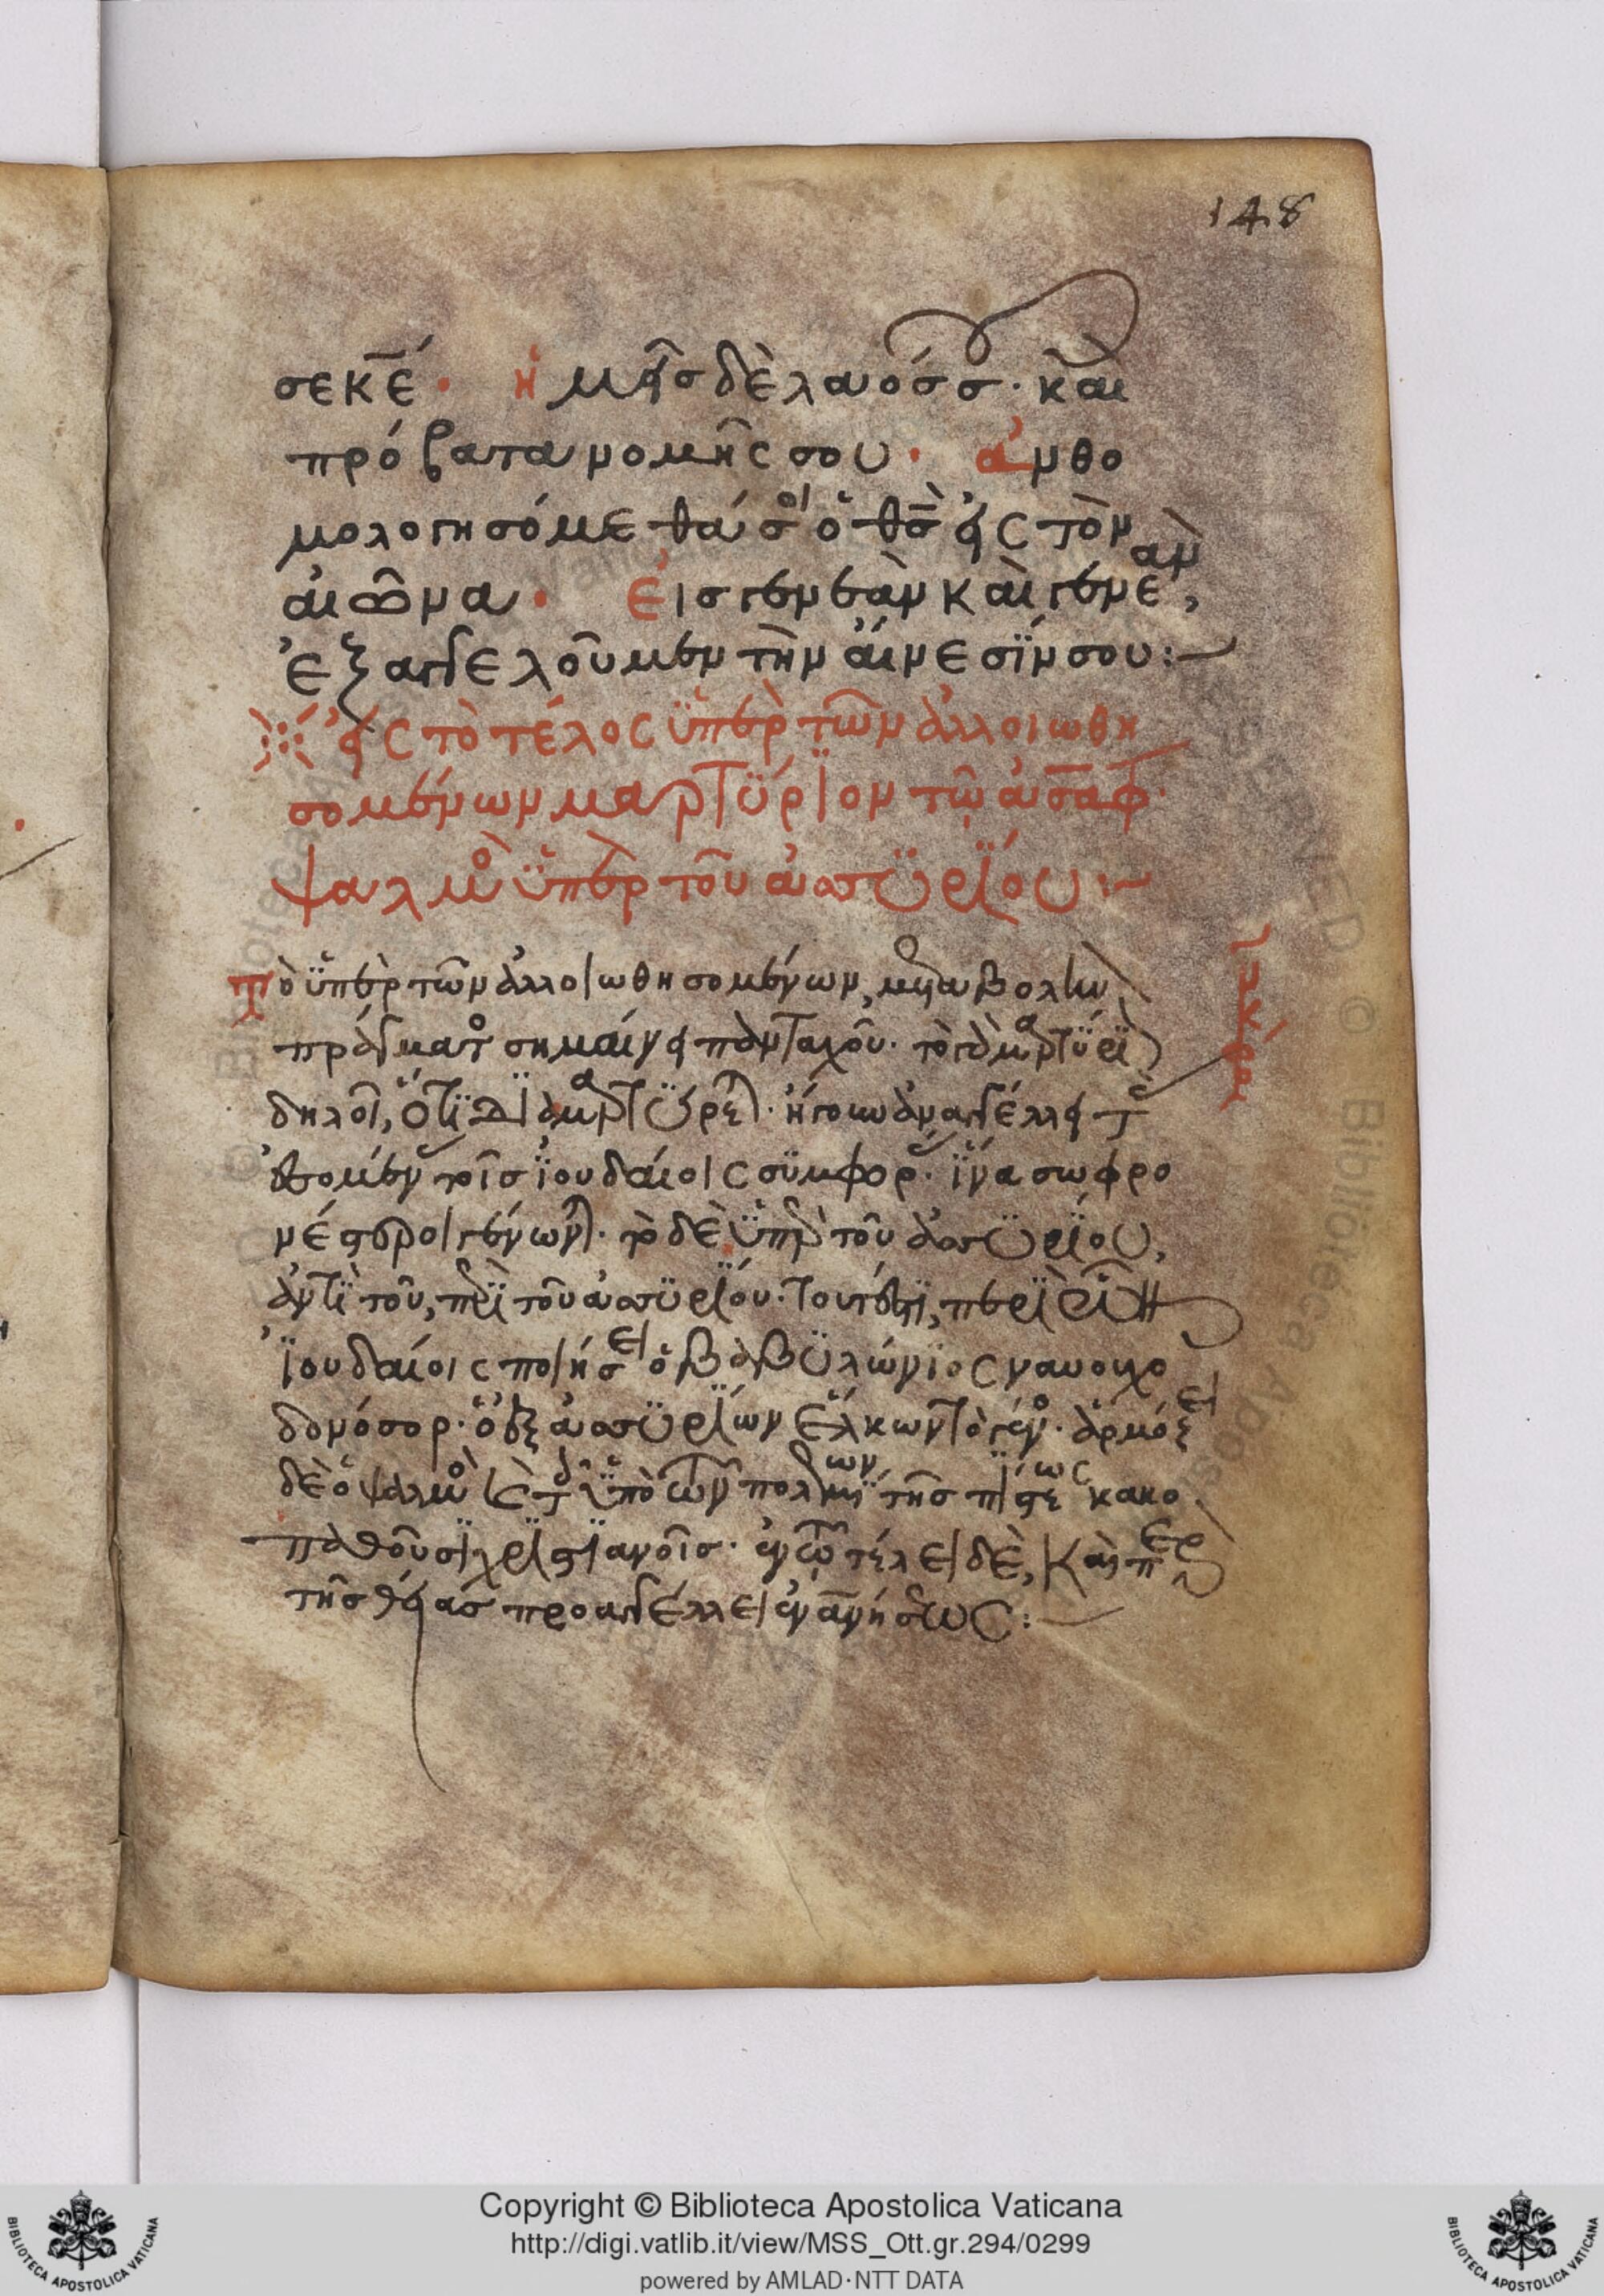 148
σε κ̅έ· ἡμεῖς δὲ λαός σ. καὶ
πρόβατα νομῆς σου· ἀνθο
μολογησόμεθά σοι ὁ θ̅ς̀ εἰς τὸν
αἰῶνα· εἰς γενεὰν καὶ γενεὰν,
ἐξαγγελοῦμεν τὴν αἴνεσίν σου:
εἰς τὸ τέλος ὑπὲρ τῶν ἀλλοιωθη
σομένων μαρτύριον τῷ ἀσὰφ·
ψαλμὸ ὑπὲρ τοῦ ἀσσυρίου:
Τὸ ὑπὲρ τῶν ἀλλοιωθησομένων, μεταβολὴν
πράγματο σημαίνει πανταχοῦ· τὸ γὰρ μαρτύρι
δηλοῖ, ὅτι διαμαρτύρε. ἤγουν ἀναγγέλλει τ
ἑπομέν τοῖς ἰουδαίοις συμφορ. ἵνα σωφρο
νέστεροι γένων. τὸ δὲ ὑπὲρ τοῦ ἀσσυρίου,
ἀντὶ τοῦ, περὶ τοῦ ἀσσυρίου. τουτέστι, περὶ
ἰουδαίοις ποιήσει ὁ βαβυλώνιος ναουχο
δονόσορ. ὃ ἐξ ἀσσυρίων ἕλκων τὸ γένο. ἁρμόξει
δὲ ὁ ψαλμὸ καὶ τ ὑπὸ τῶν πολεμίων τῆς πίστεως κακο
παθοῦσι χριστιανοῖς. ἐν τῷ τέλει δὲ, καὶ περ
τῆς θείας προαγγέλλει ἐνανήσεως: